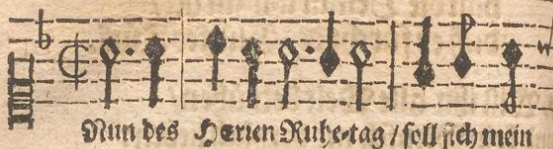 Nun des Herren Ruhe-tag / soll sich mein